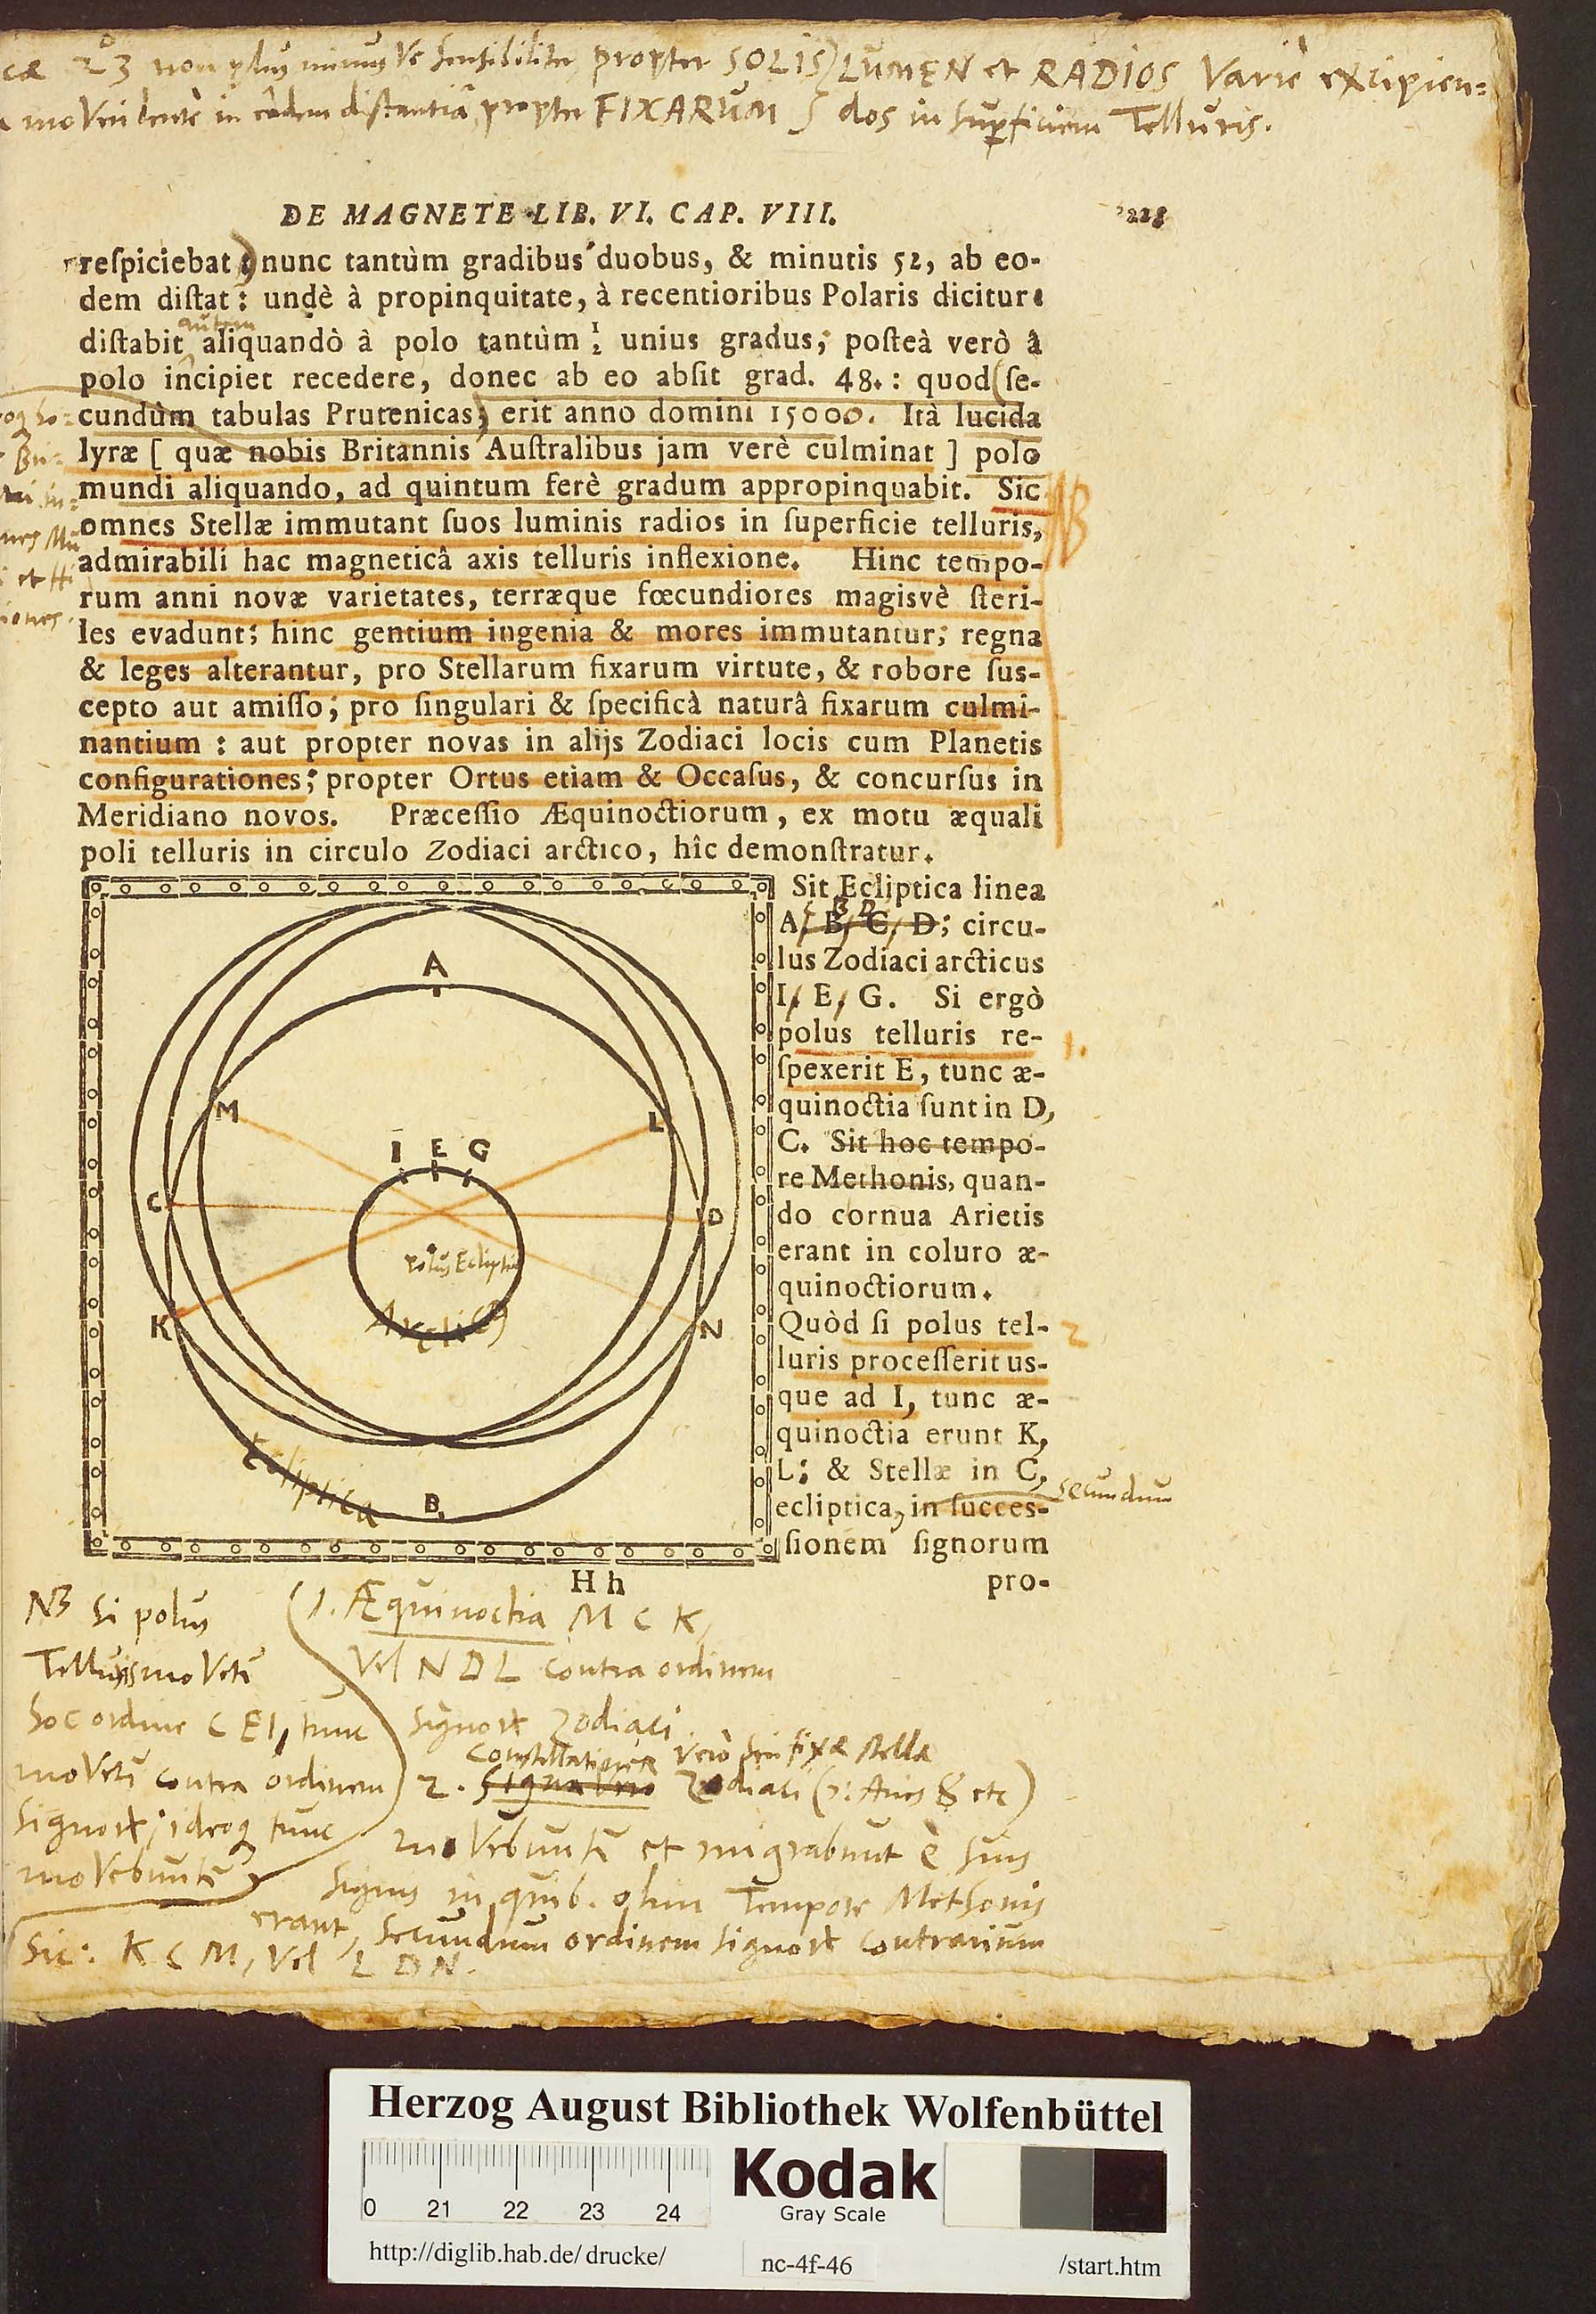 cæ 2°3 non plus minusve sensibiliter propter SOLIS) LUMEN et RADIOS Variè excipien=
in eâdem distantiâ, propter FIXARUM } dos in superficiem Telluris.
DE MAGNETE LIB. VI. CAP. VIII.
reſpiciebat:) nunc tantùm gradibus duobus, & minutis 52, ab eo-
dem diſtat: undè à propinquitate, à recentioribus Polaris dicitur:
autem
diſtabit aliquandò à polo tantùm ½ unius gradus; poſteà verò â
polo incipiet recedere, donec ab eo abſit grad. 48.: quod (ſe-
cundùm tabulas Prutenicas) erit anno domini 15000. Ità lucida
lyræ [ quæ nobis Britannis Auſtralibus jam verè culminat ] polo
mundi aliquando, ad quintum ferè gradum appropinquabit. Sic
omnes Stellæ immutant ſuos luminis radios in ſuperficie telluris,
NB
admirabili hac magneticâ axis telluris inflexione. Hinc tempo-
et Hi
rum anni novæ varietates, terræque fœcundiores magisvè ſteri-
iones.
les evadunt; hinc gentium ingenia & mores immutantur; regna
& leges alterantur, pro Stellarum fixarum virtute, & robore ſus-
cepto aut amiſſo; pro ſingulari & ſpecificà naturâ fixarum culmi-
nantium : aut propter novas in alijs Zodiaci locis cum Planetis
configurationes; propter Ortus etiam & Occaſus, & concurſus in
Meridiano novos. Præceſſio Æquinoctiorum, ex motu æquali
poli telluris in circulo Zodiaci arctico, hîc demonſtratur.
A
M
L
I E G
C
D
polus Eclipticæ
K
N
Arctic(9
Ecliptica
B.
Sit Ecliptica linea
C B D
A, B, C, D; circu-
lus Zodiaci arcticus
I, E, G. Si ergò
polus telluris re-
1.
ſpexerit E, tunc æ-
quinoctia ſunt in D,
C. Sit hoc tempo-
re Methonis, quan-
do cornua Arietis
erant in coluro æ-
quinoctiorum.
Quòd ſi polus tel-
2
luris proceſſerit us-
que ad I, tunc æ-
quinoctia erunt K,
L; & Stellæ in C,
secundum
ecliptica, in ſucceſ-
ſionem ſignorum
H h
pro-
NB si polus
Telluris moVetur
hoc ordine G E I, tunc
moVetur contra ordinem
signorum; ideoq tunc
moVebuntur
(1. Æquinoctia M C K,
Vel N D L contra ordinem
signorum Zodiaci.
Constellationes Verò seu fixæ stellæ
2. Signa Vero Zodiaci (etc)
moVebuntur et migrabunt è suis
signis in quib. olim Tempore Methonis
erant, secundum ordinem signorum contrarium
Sic: K C M, Vel L D N.
Herzog August Bibliothek Wolfenbüttel
0 21 22 23 24
Kodak
Gray Scale
http://diglib.hab.de/drucke/
nc-4f-46
/start.htm